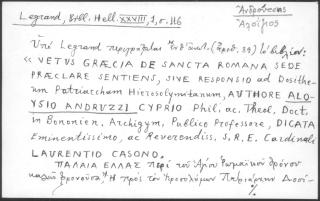 Legrand, Bibl. Hell. XXVIII, 1, σ. 116
Ἀνδρούτσης
Ἀλοΐσιος
Ὑπὸ Legrand περιγράφεται
« VETUS GRÆCIA DE SANCTA ROMANA SEDE
PRÆCLARE SENTIENS, SIVE RESPONSIO ad Dosithe-
um Patriarcham Hierosolymitanum, AUTHORE ALO-
YSIO ANDRUZZI CYPRIO Phil. ac Theol. Doct.
in Bononien. Archigym. Publico Professore, DICATA
Eminentissimo, ac Reverendiss. S.R.E. Cardinali
LAURENTIO CASONO.
ΠΑΛΑΙΑ ΕΛΛΑΣ Περὶ τοῦ Ἁγίου Ῥωμαϊκοῦ θρόνου
καλῶς φρονοῦσα Ἢ πρὸς τὸν Ἱεροσολύμων Πατριάρχην Δοσί-